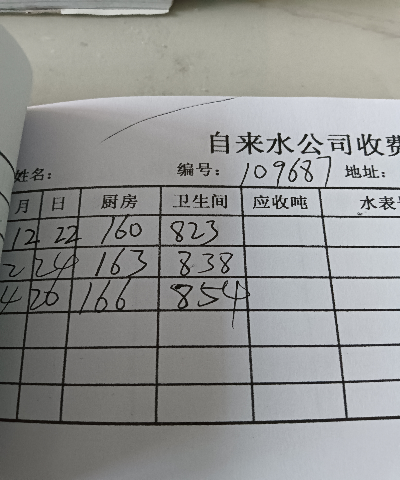 自来水公司收费
姓名： 编号：109687 地址：
月 日 厨房 卫生间 应收吨 水表
12 22 160 823
2 24 163 838
4 20 166 854